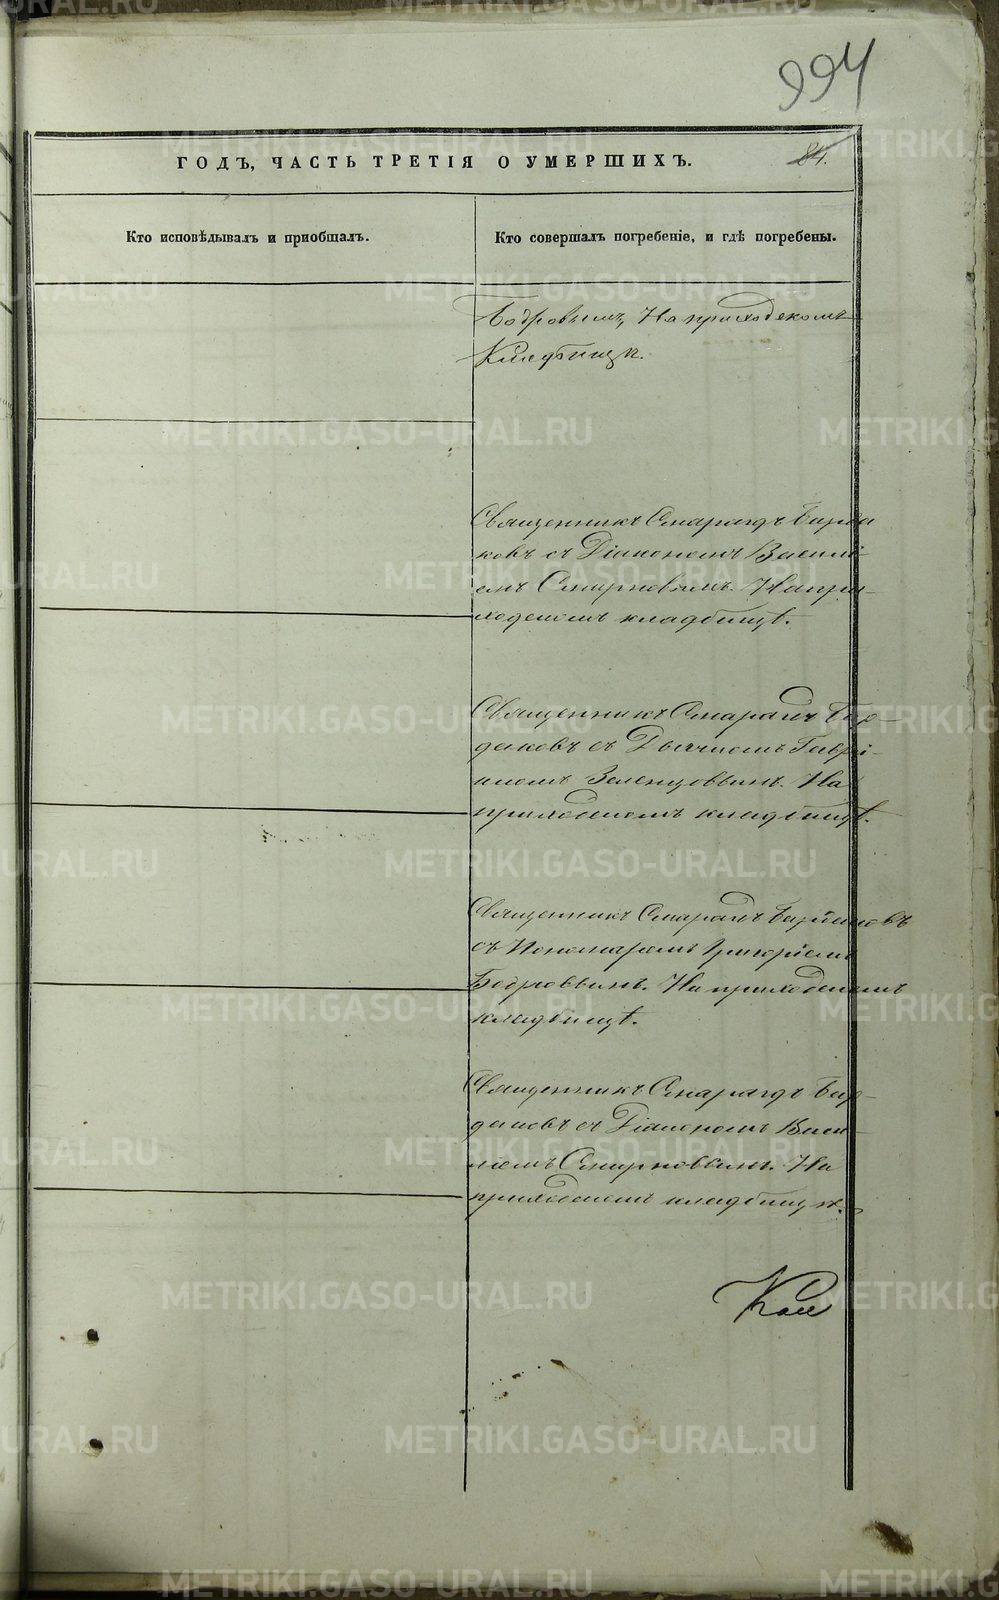 994
ГОДЪ, ЧАСТЬ ТРЕТІЯ О УМЕРШИХЪ.
84.
Кто исповѣдывалъ и приобщалъ.
Кто совершалъ погребеніе, и гдѣ погребены.
Бобровымъ, На приходскомъ
Кладбищѣ.
Священникъ Смарагдъ Бирда
ковъ съ Діакономъ Василі-
емъ Смирновымъ. На при-
ходскомъ кладбищѣ.
Священникъ Смарагдъ Бир-
даковъ съ Дьячкомъ Гаврі-
иломъ Зеленцоввымъ. На
приходскомъ кладбищѣ.
Священникъ Смарагдъ Бирдаковъ
съ Пономаремъ Григоріемъ
Боброввымъ. На приходскомъ
кладбищѣ.
Священникъ Смарагдъ Бир-
даковъ съ Діакономъ Васи-
ліемъ Смирноввымъ. На
приходскомъ кладбищѣ.
METRIKI.GASO-URAL.RU